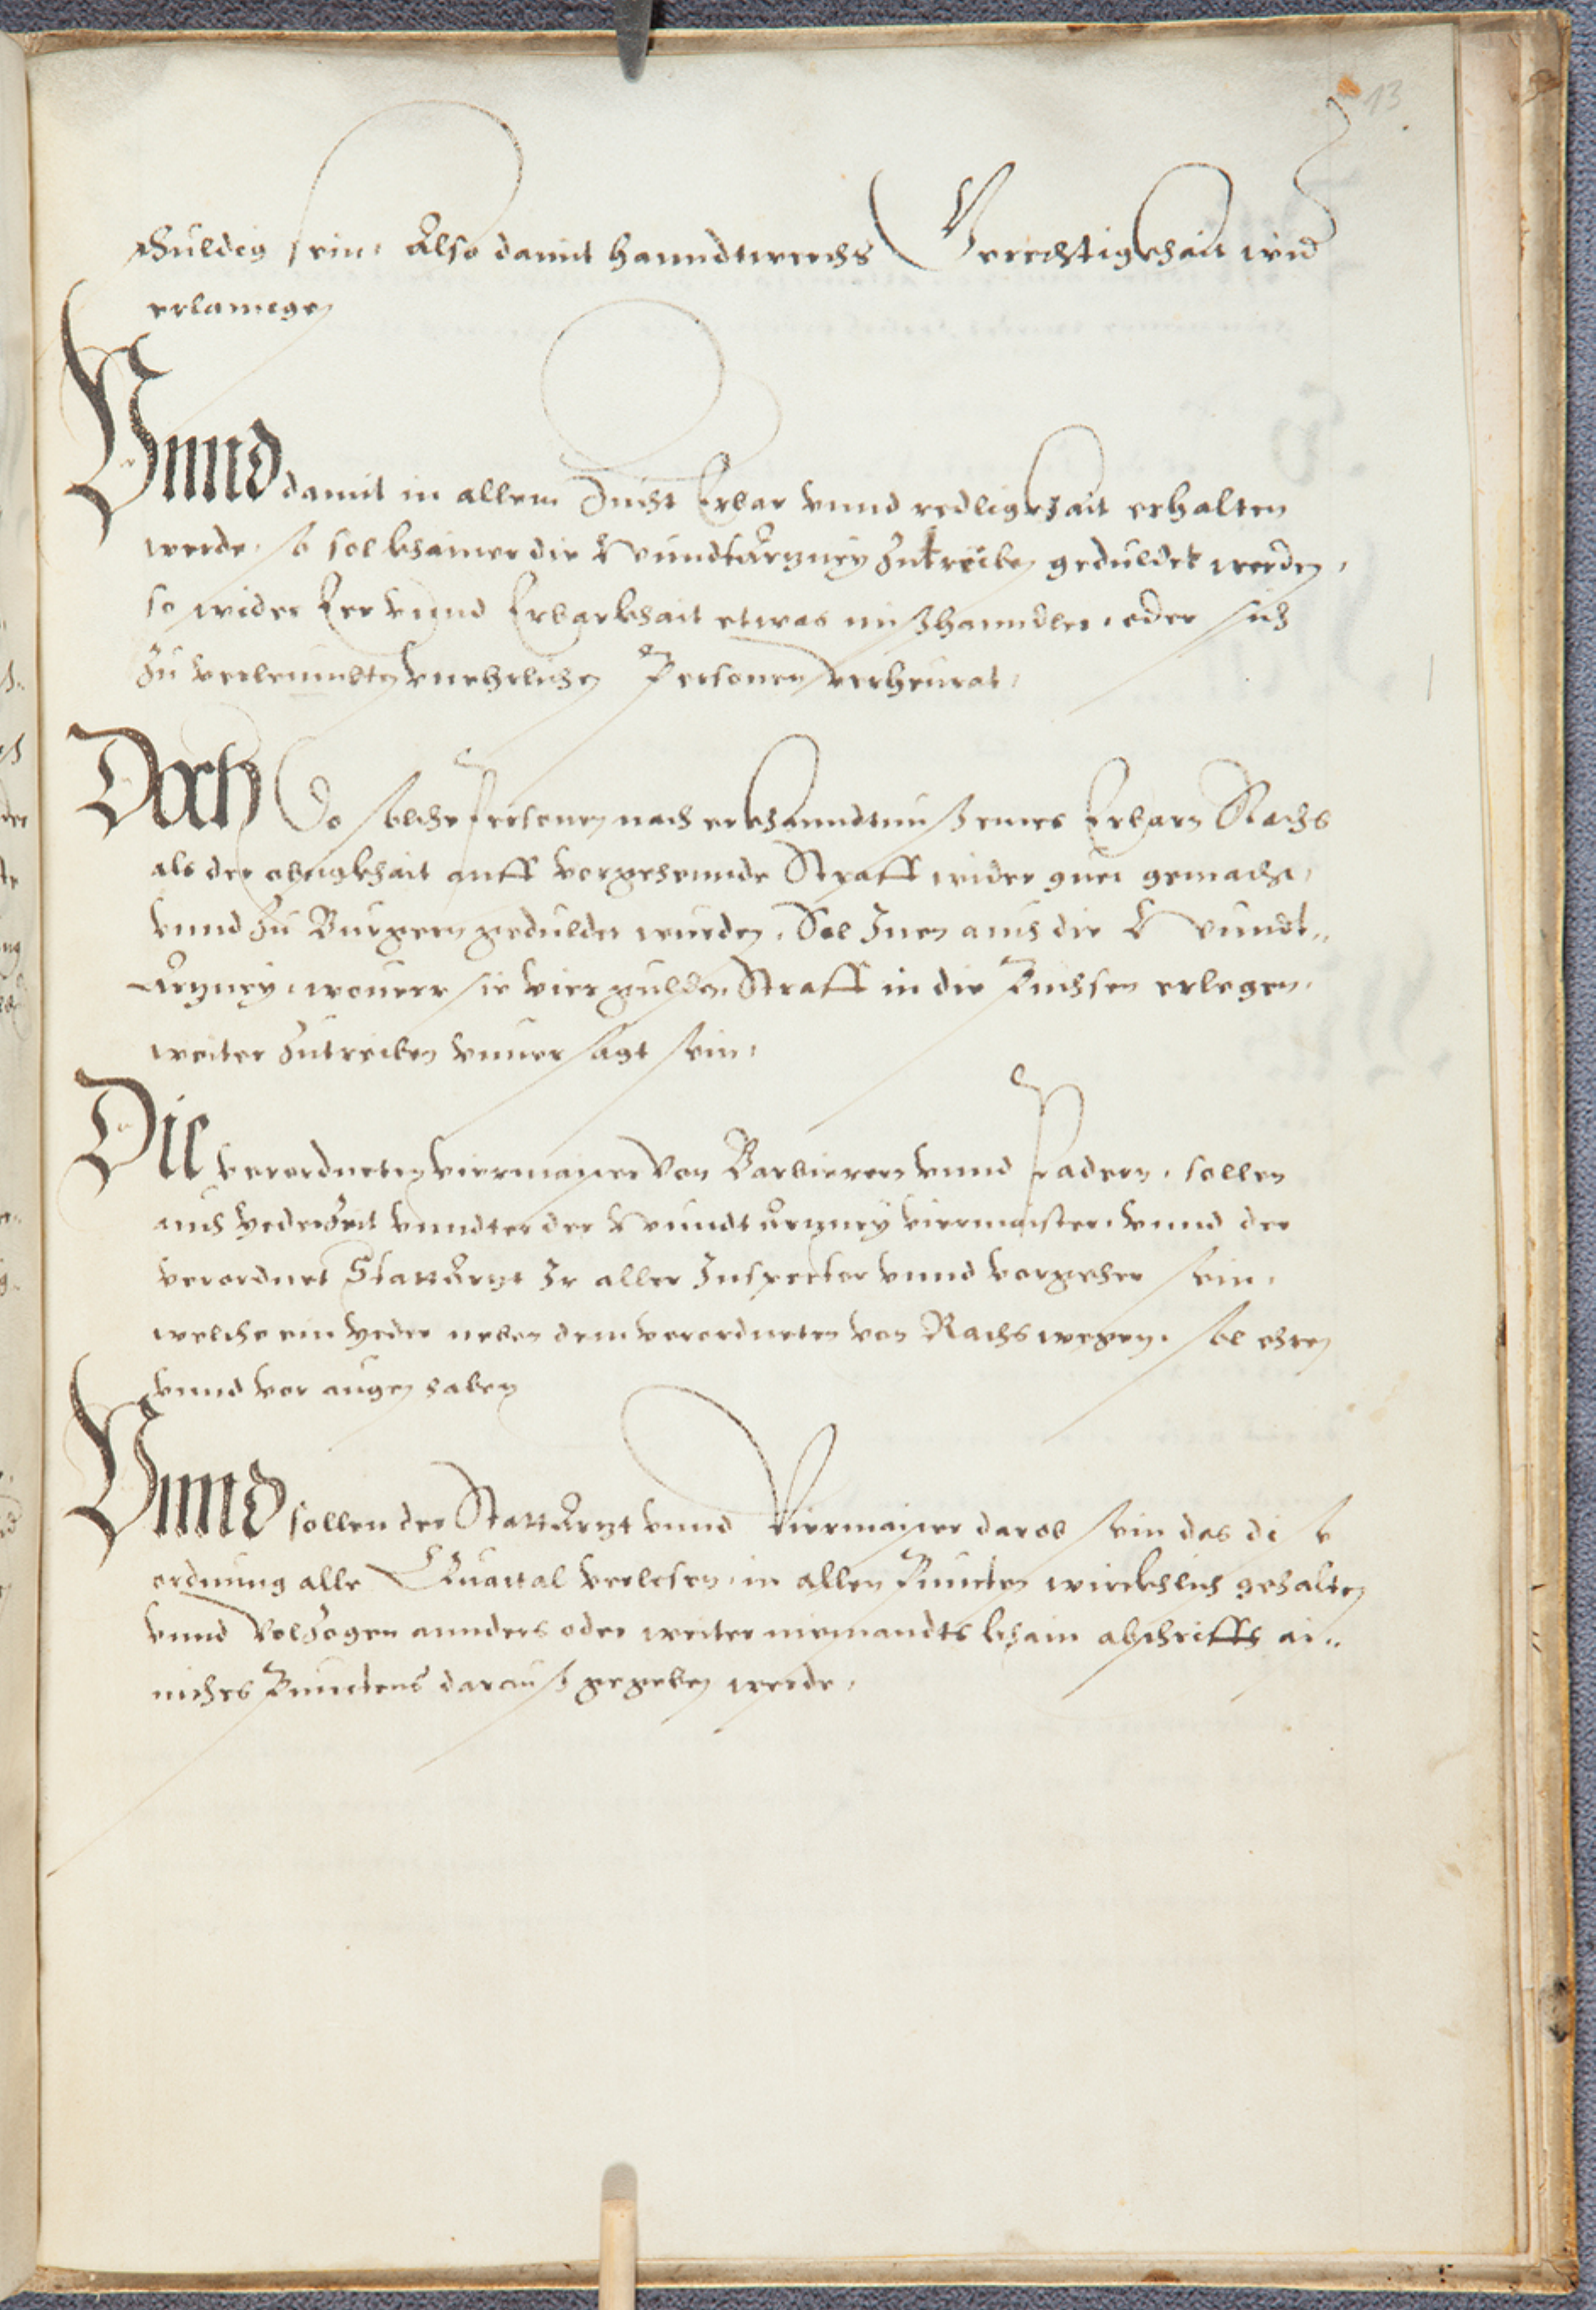 13
schuldig sein, Also damit hanndtwerchs Gerechtigkhait wird
erlannge
Vnnd damit in allem Zucht Erbar vnnd redligkhait erhalten
werde, so sol khainer die Wundtärzney zutreiben geduldet werden,
so wider Eer vnnd Erbarkhait etwas mißhanndlet, oder sich
zu verleumbten vnehrlichen Personen verheurat,
Doch Do solche Personen nach erkhanndtnuß eines Erbarn Raths
als der obrigkhait auff vorgehennde Straff wider guet gemacht,
vnnd zu Burgern geduldet wurden, Sol Inen auch die Wundt„
Ärzney, wouerr sie vier gulden Straff in die Püchsen erlegen,
weiter zutreiben vnuersagt sein,
Die verordneten viermaister von Barbierern vnnd Padern, sollen
auch yederzeit vnndter der Wundtärzney viermaister, vnnd der
verordnet Stattärzt Ir aller Inspector vnnd vorgeher sein,
welche ein yeder neben dem verordneten von Raths wegen, sol ehren
vnnd vor augen haben
Vnnd sollen der Stattärzt vnnd Viermaister darob sein das dise
ordnung alle Quartal verlesen, in allen Puncten wirckhlich gehalten
vnnd volzogen annders oder weiter niemandts khain abschrifft ai„
niches Punctens darauß gegeben werde,